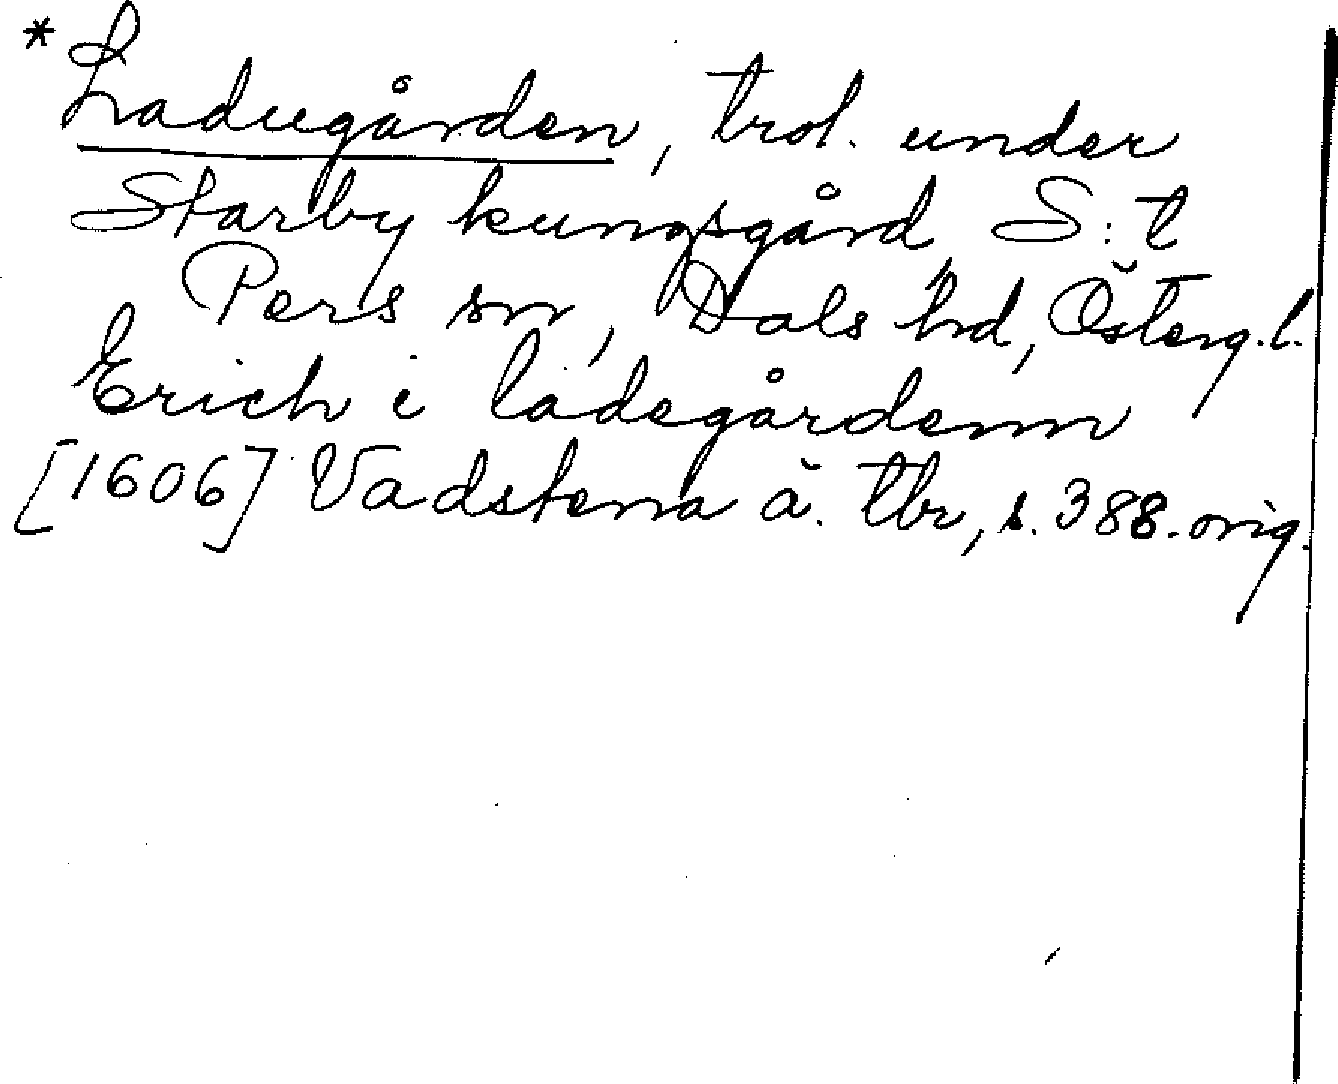 * Ladugården, trol. under
Starby kungsgård, S:t
Pers sn, Dals hd, Österg.l.
Erich i ladegårdenn
[1606] Vadstena ä. tbr, s. 388. orig.